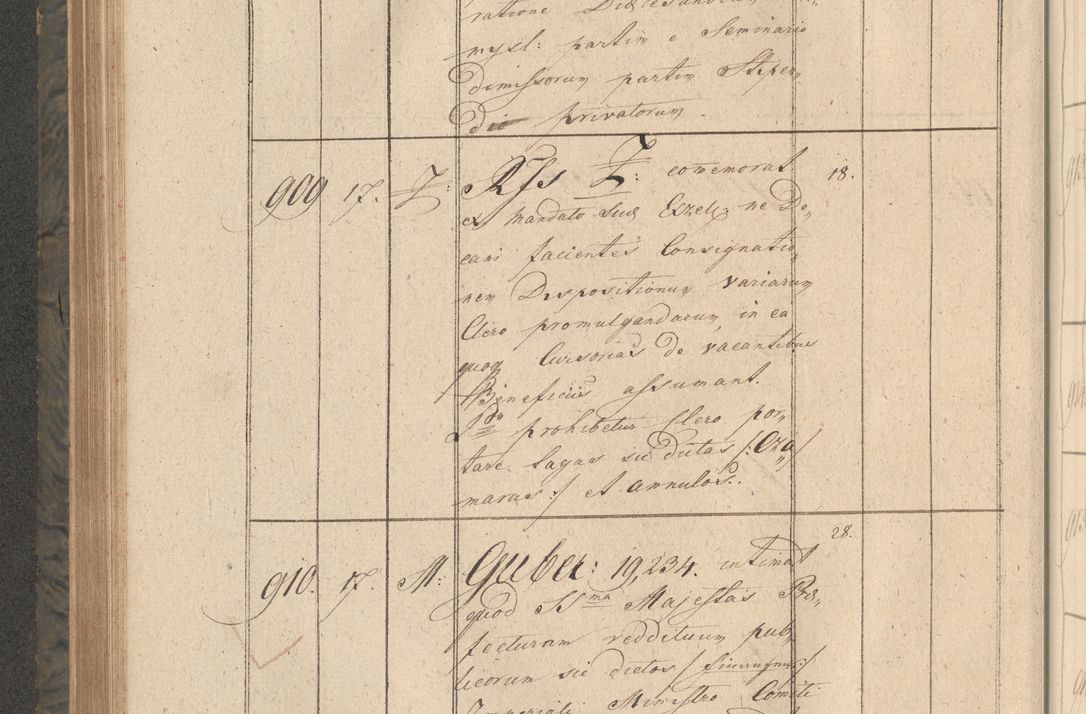 ratione
mysl: partim e Seminario
dimissorum partim Stipen„
dio privatorum.
909 17. Z: RJs Z: comemorat 18.
ex mandato suæ Excell: ne De„
cani facientes Consignatio„
nem Dispositionum variarum
Clero promulgandarum, in ea
quoq Cursorias de vacantibus
Beneficiis assumant.
prohibetur Clero por„
tare sagas sic dictas /: Cza„
maras :/ et annulos.
910. 17. M: Guber: 19,234. intimat 28.
quod SSma Majestas Præ„
fecturam reddituum pub„
licorum sic dictos
Imperiali Ministro Comiti